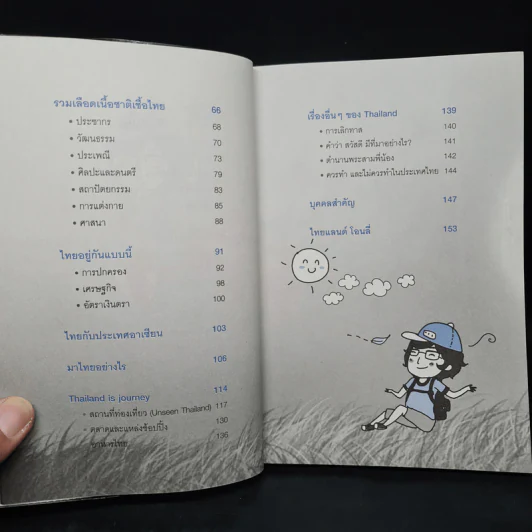 รวมเลือดเนื้อชาติเชื้อไทย 66
• ประชากร 68
• วัฒนธรรม 70
• ประเพณี 73
• ศิลปะและดนตรี 79
• สถาปัตยกรรม 83
• การแต่งกาย 85
• ศาสนา 88
ไทยอยู่กันแบบนี้ 91
• การปกครอง 92
• เศรษฐกิจ 98
• อัตราเงินตรา 100
ไทยกับประเทศอาเซียน 103
มาไทยอย่างไร 106
Thailand is journey 114
• สถานที่ท่องเที่ยว (Unseen Thailand) 117
• ตลาดและแหล่งช้อปปิ้ง 130
136
เรื่องอื่นๆ ของ Thailand 139
• การเลิกทาส 140
• คำว่า สวัสดี มีที่มาอย่างไร? 141
• ตำนานพระสามพี่น้อง 142
• ควรทำ และไม่ควรทำในประเทศไทย 144
บุคคลสำคัญ 147
ไทยแลนด์ โอนลี่ 153